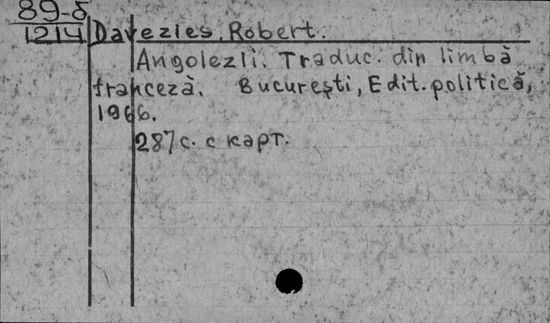 89-8
1214
Davezies, Robert.
Angolezii. Traduc. din limbă
franceză. București, Edit. politică,
1966.
287 с. с карт.